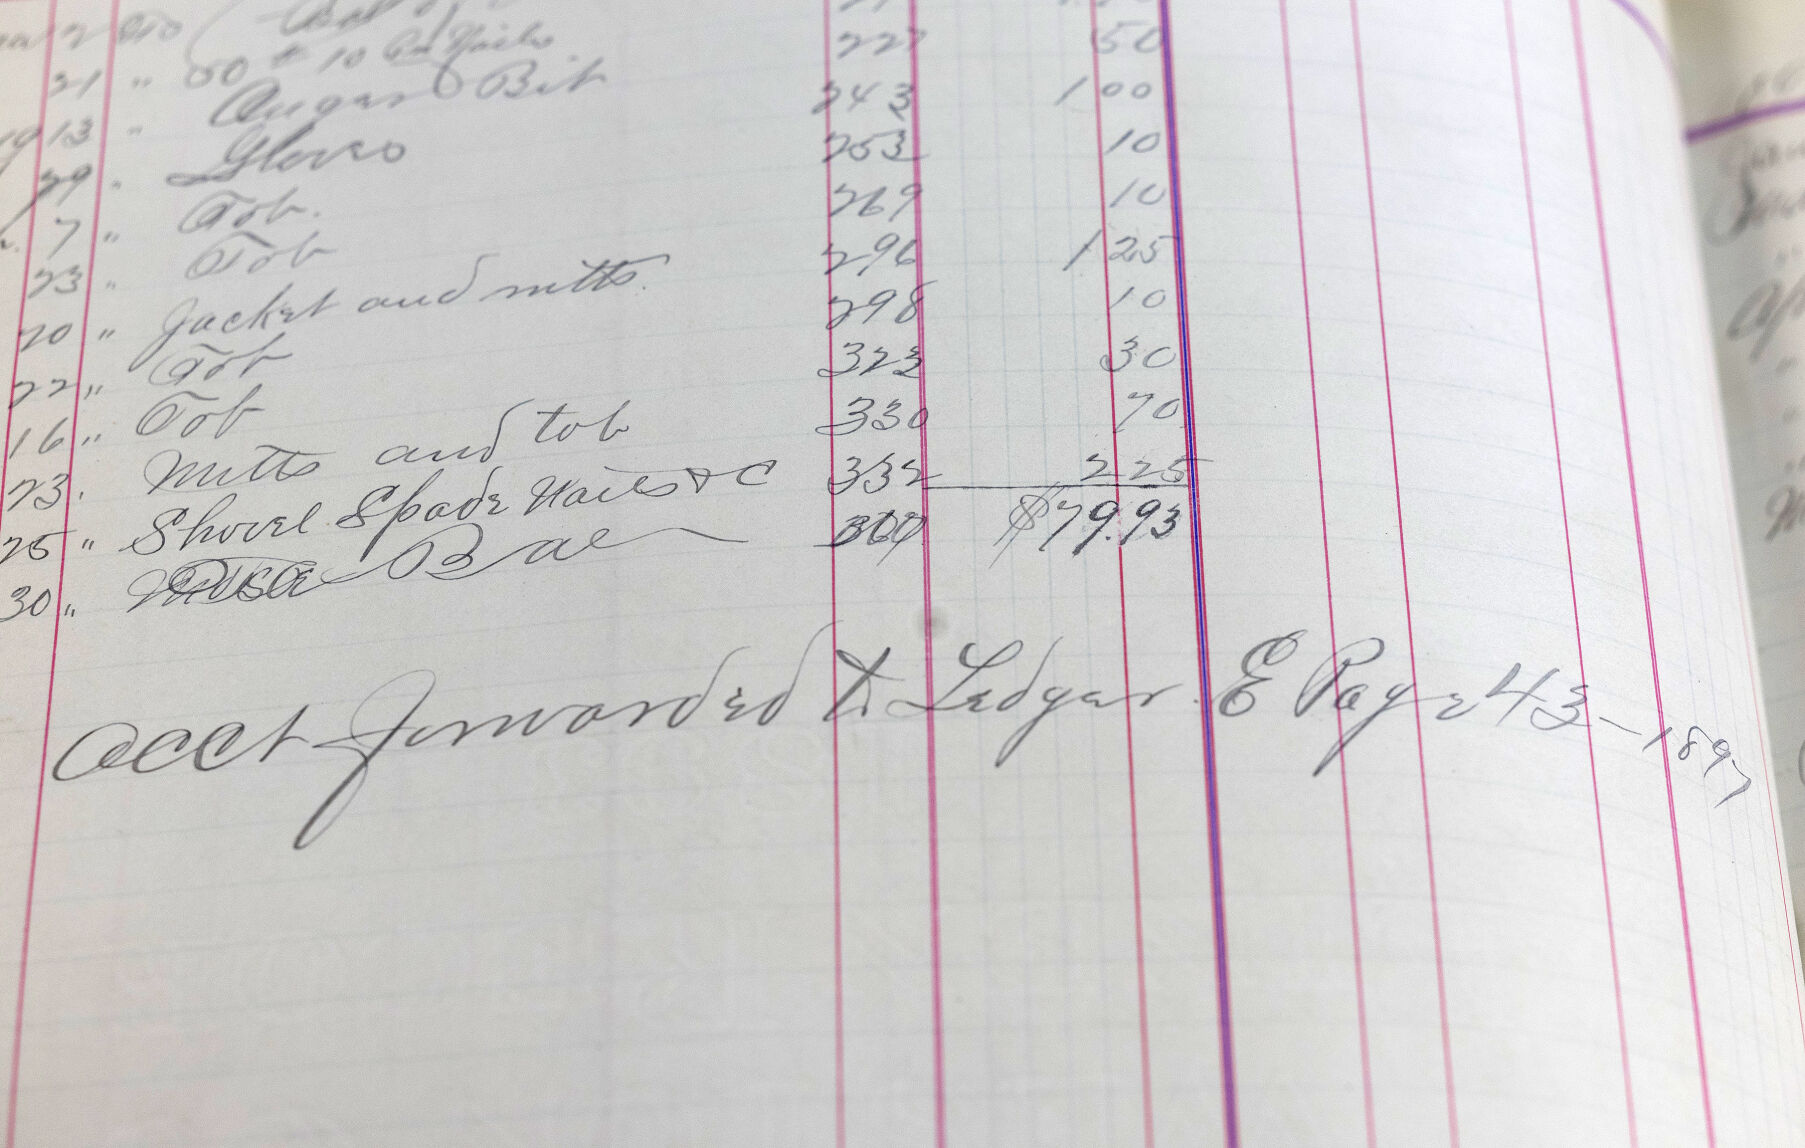 31 " 50 # 10 Nails
13 " Augar Bit 227 50
29 " Gloves 243 1 00
7 " Tob. 253 10
23 " Tob 269 10
20 " Jacket and mitts. 296 1 25
22 " Tob 298 10
16 " Tob 323 30
23. Mitts and tob 330 70
25 " Shovel Spade Nails & C 332 2 25
30 " Bal $79.93
Acct Forwarded to Ledger. E Page 43 - 1897